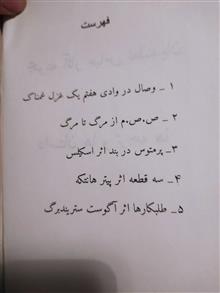 فهرست
۱ ـ وصال در وادی هفتم یک غزل غمناگ
۲ ـ ص.ص.م از مرگ تا مرگ
۳ـ پرمتوس در بند اثر اسکیلس
۴ـ سه قطعه اثر پیتر هانتکه
۵ـ طلبکارها اثر آگوست ستریندبرگ